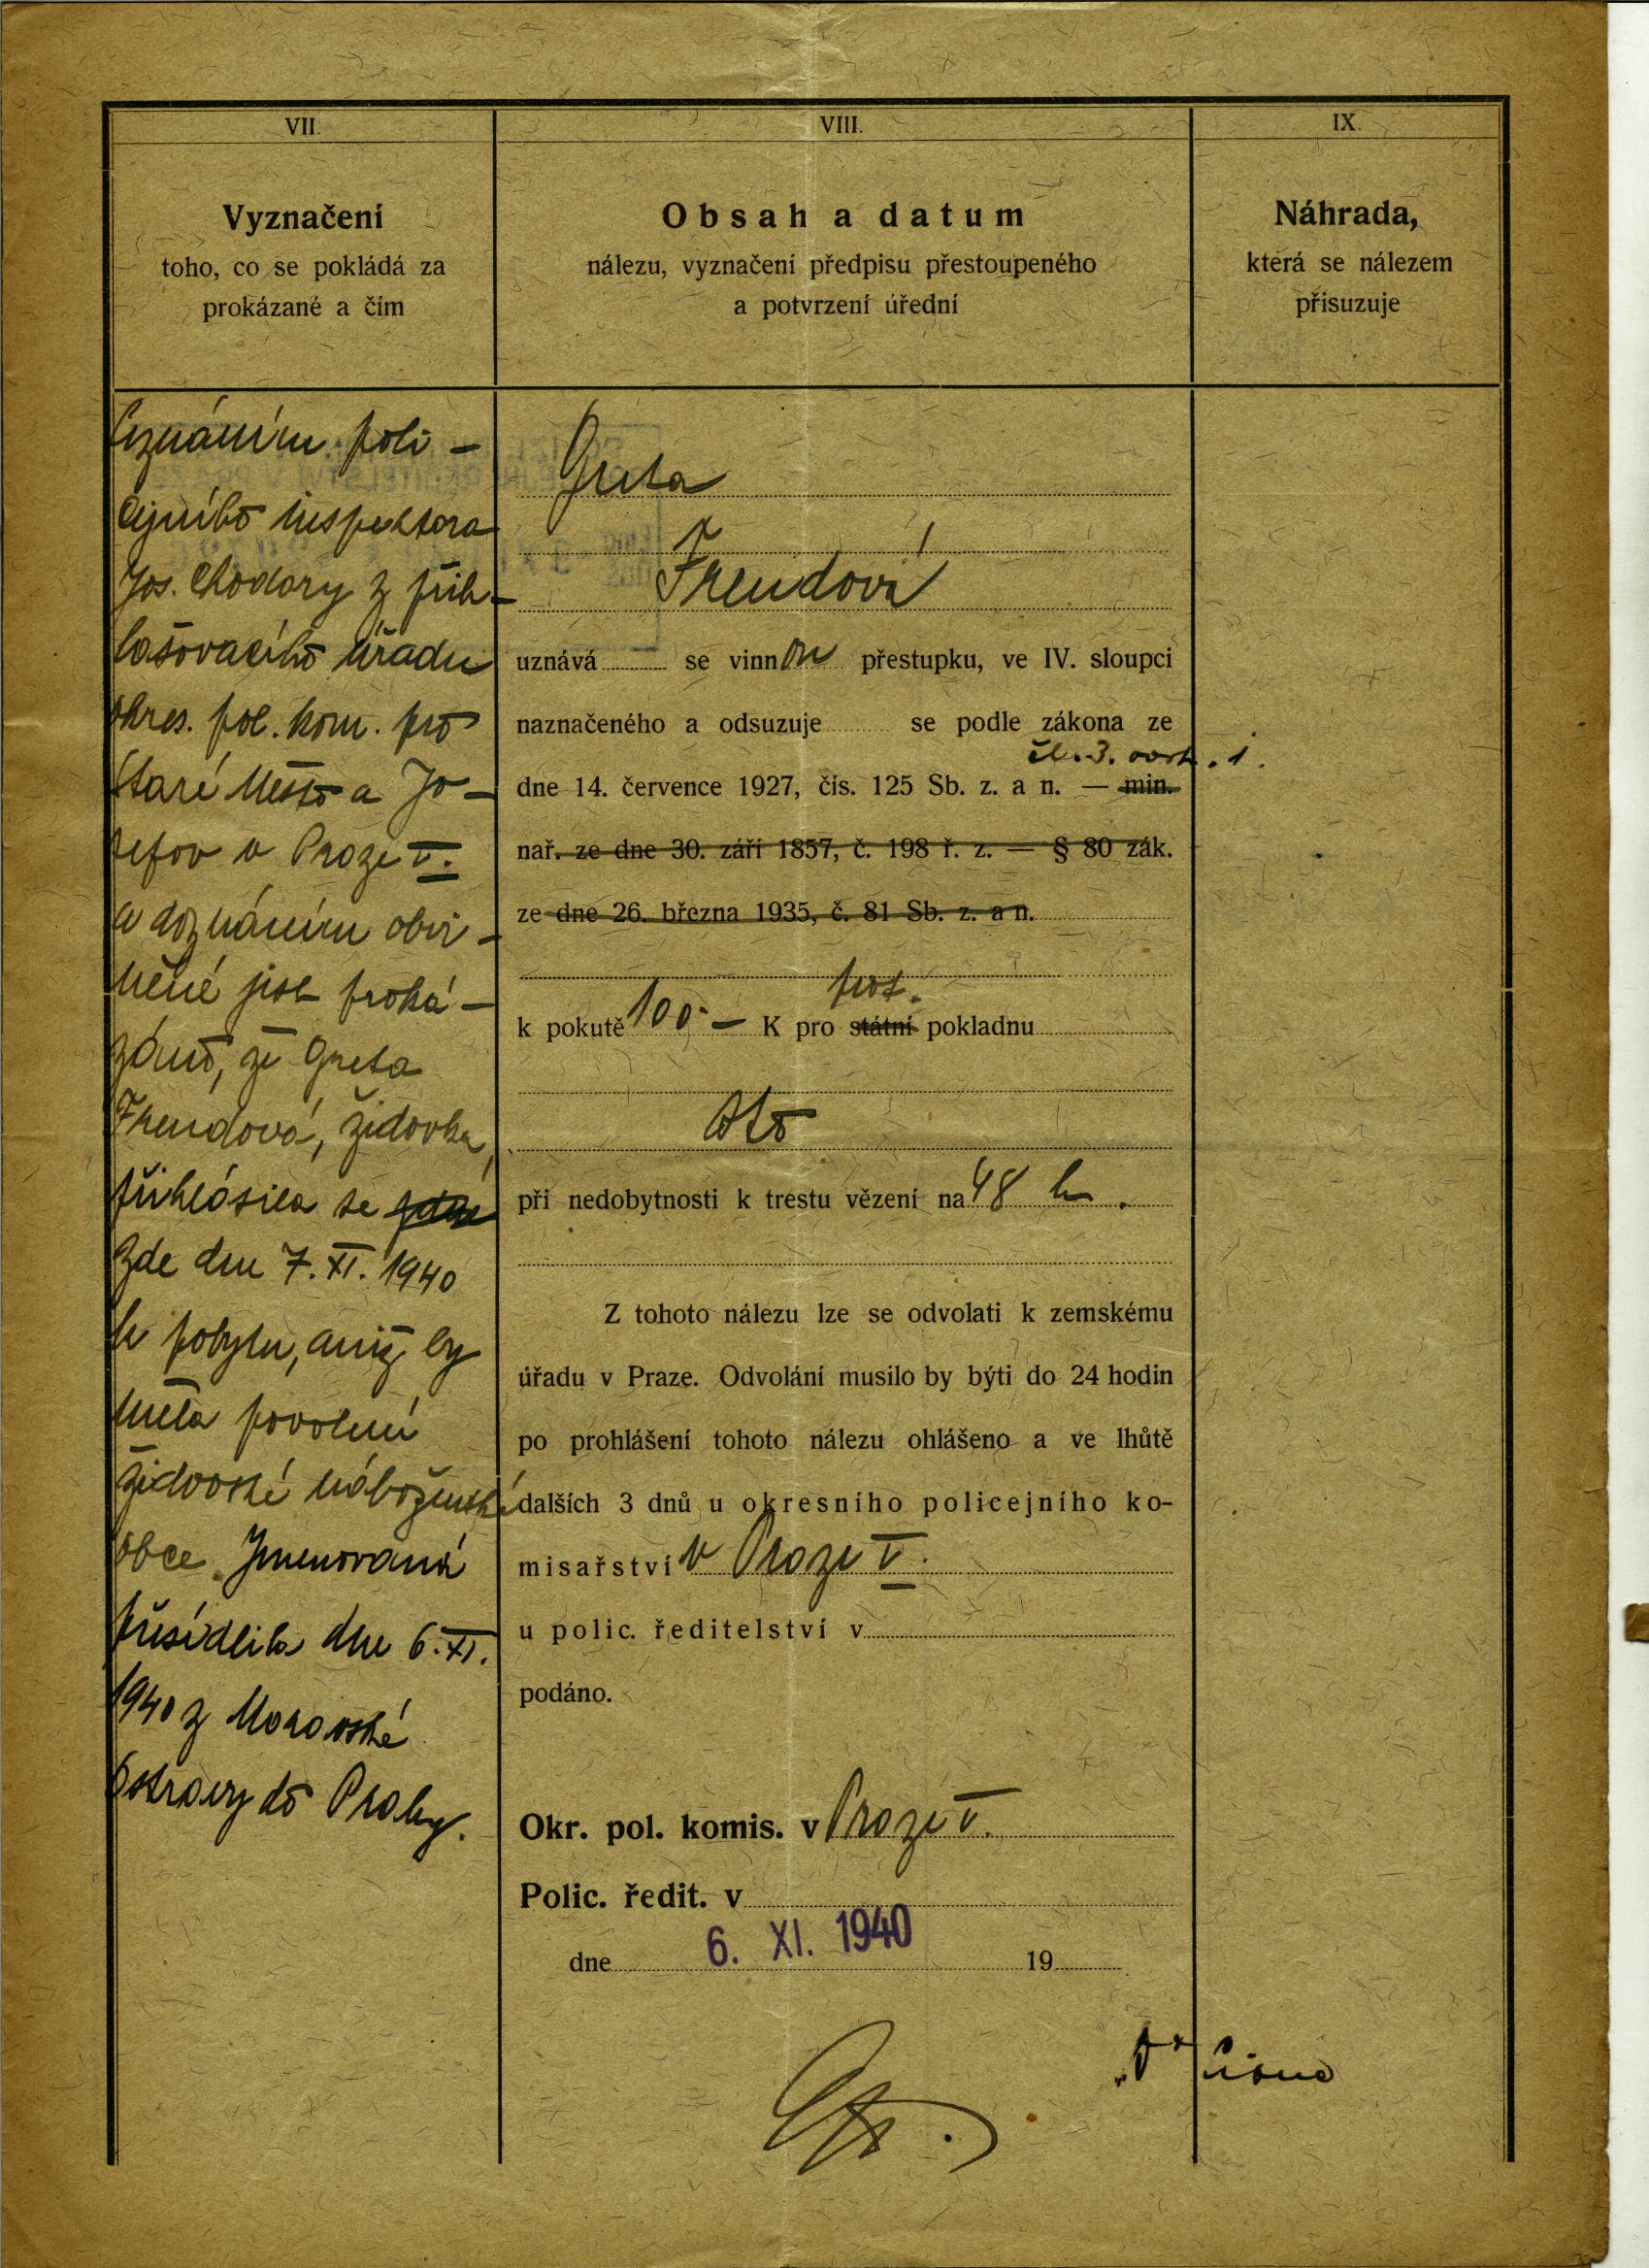 VII.
Vyznačení
toho, co se pokládá za
prokázané a čím
Seznáním poli-
cejního inspektora
Jos. Chodory z přih-
lašovacího úřadu
okres. pol. kom. pro
Staré Město a Jo-
sefov v Praze V.
a doznáním obvi-
něné jest proká-
záno, že Greta
Freudová, židovka,
přihlásila se
zde dne 7. XI. 1940
k pobytu, aniž by
měla povolení
židovské náboženské
obce. Jmenovaná
přesídlila dne 6. XI.
1940 z Moravské
Ostravy do Prahy.
VIII.
Obsah a datum
nálezu, vyznačení předpisu přestoupeného
a potvrzení úřední
Greta
Freudová
uznává se vinnou přestupku, ve IV. sloupci
naznačeného a odsuzuje se podle zákona ze
čl. 3. odst. 1.
dne 14. července 1927, čís. 125 Sb. z. a n. — min.
nař. ze dne 30. září 1857, č. 198 ř. z. — § 80 zák.
ze dne 26. března 1935, č. 81 Sb. z. a n.
prot.
k pokutě 100.- K pro státní pokladnu
při nedobytnosti k trestu vězení na 48 h.
Z tohoto nálezu lze se odvolati k zemskému
úřadu v Praze. Odvolání musilo by býti do 24 hodin
po prohlášení tohoto nálezu ohlášeno a ve lhůtě
dalších 3 dnů u okresního policejního ko-
misařství v Praze V.
u polic. ředitelství v
podáno.
Okr. pol. komis. v Praze V.
Polic. ředit. v
dne 6. XI. 1940 19
IX.
Náhrada,
která se nálezem
přisuzuje